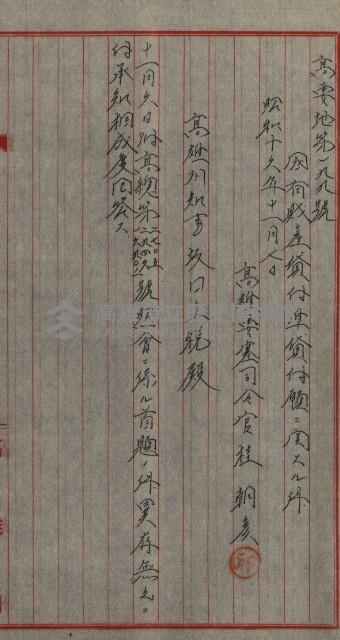 高要地第一九九號
國有財産貸付準貸付願ニ関スル件
昭和十九年十一月七日
高雄要塞司令官桂 朝彦
高雄州知事坂口主税殿
十一月六日附高總第號照會ニ係ル首題ノ件異存無之ニ
付承知相成度回答ス